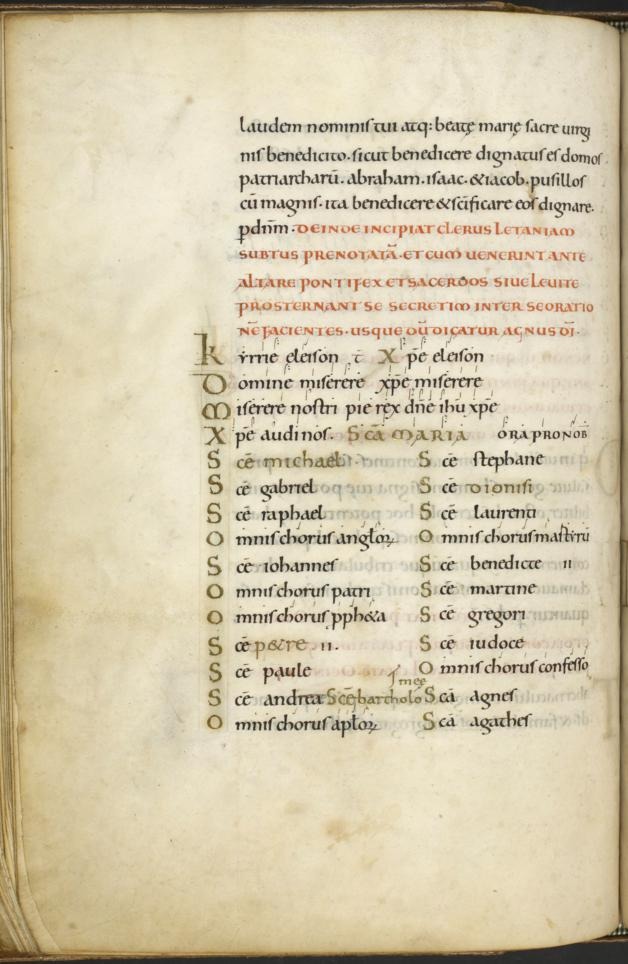 laudem nominis tui atq: beatę marię sacre uirgi
nis benedicito. sicut benedicere dignatus es domos
patriarcharū. abraham. isaac. & iacob. pusillos
cū magnis. ita benedicere & scīficare eos dignare.
ꝑ dn̄m. DEINDE INCIPIAT CLERUS LETANIAM
SUBTUS PRENOTATĀ. ET CUM UENERINT ANTE
ALTARE PONTIFEX ET SACERDOS SIUE LEUITE
PROSTERNANT SE SECRETIM INTER SE ORATIO
NĒ FACIENTES. USQUE QUO DICATUR AGNUS DI.
Kyrrie eleison Xpē eleison
Domine miserere xpē miserere
Miserere nostri pie rex dn̄e ihū xpē
Xpē audi nos. SCĀ MARIA ORA PRO NOB
Scē michael
Scē gabriel
Scē raphael
Omnis chorus anglorꝝ
Scē iohannes
Omnis chorus patri
Omnis chorus pph&a
Scē p&re . II .
Scē paule
Scē andrea Scē bartholo
mee
Omnis chorus aplorꝝ
Scē stephane
Scē dionisi
Scē laurenti
Omnis chorus martirū
Scē benedicte II
Scē martine
Scē gregori
Scē iudoce
Omnis chorus confesso
Scā agnes
Scā agathes